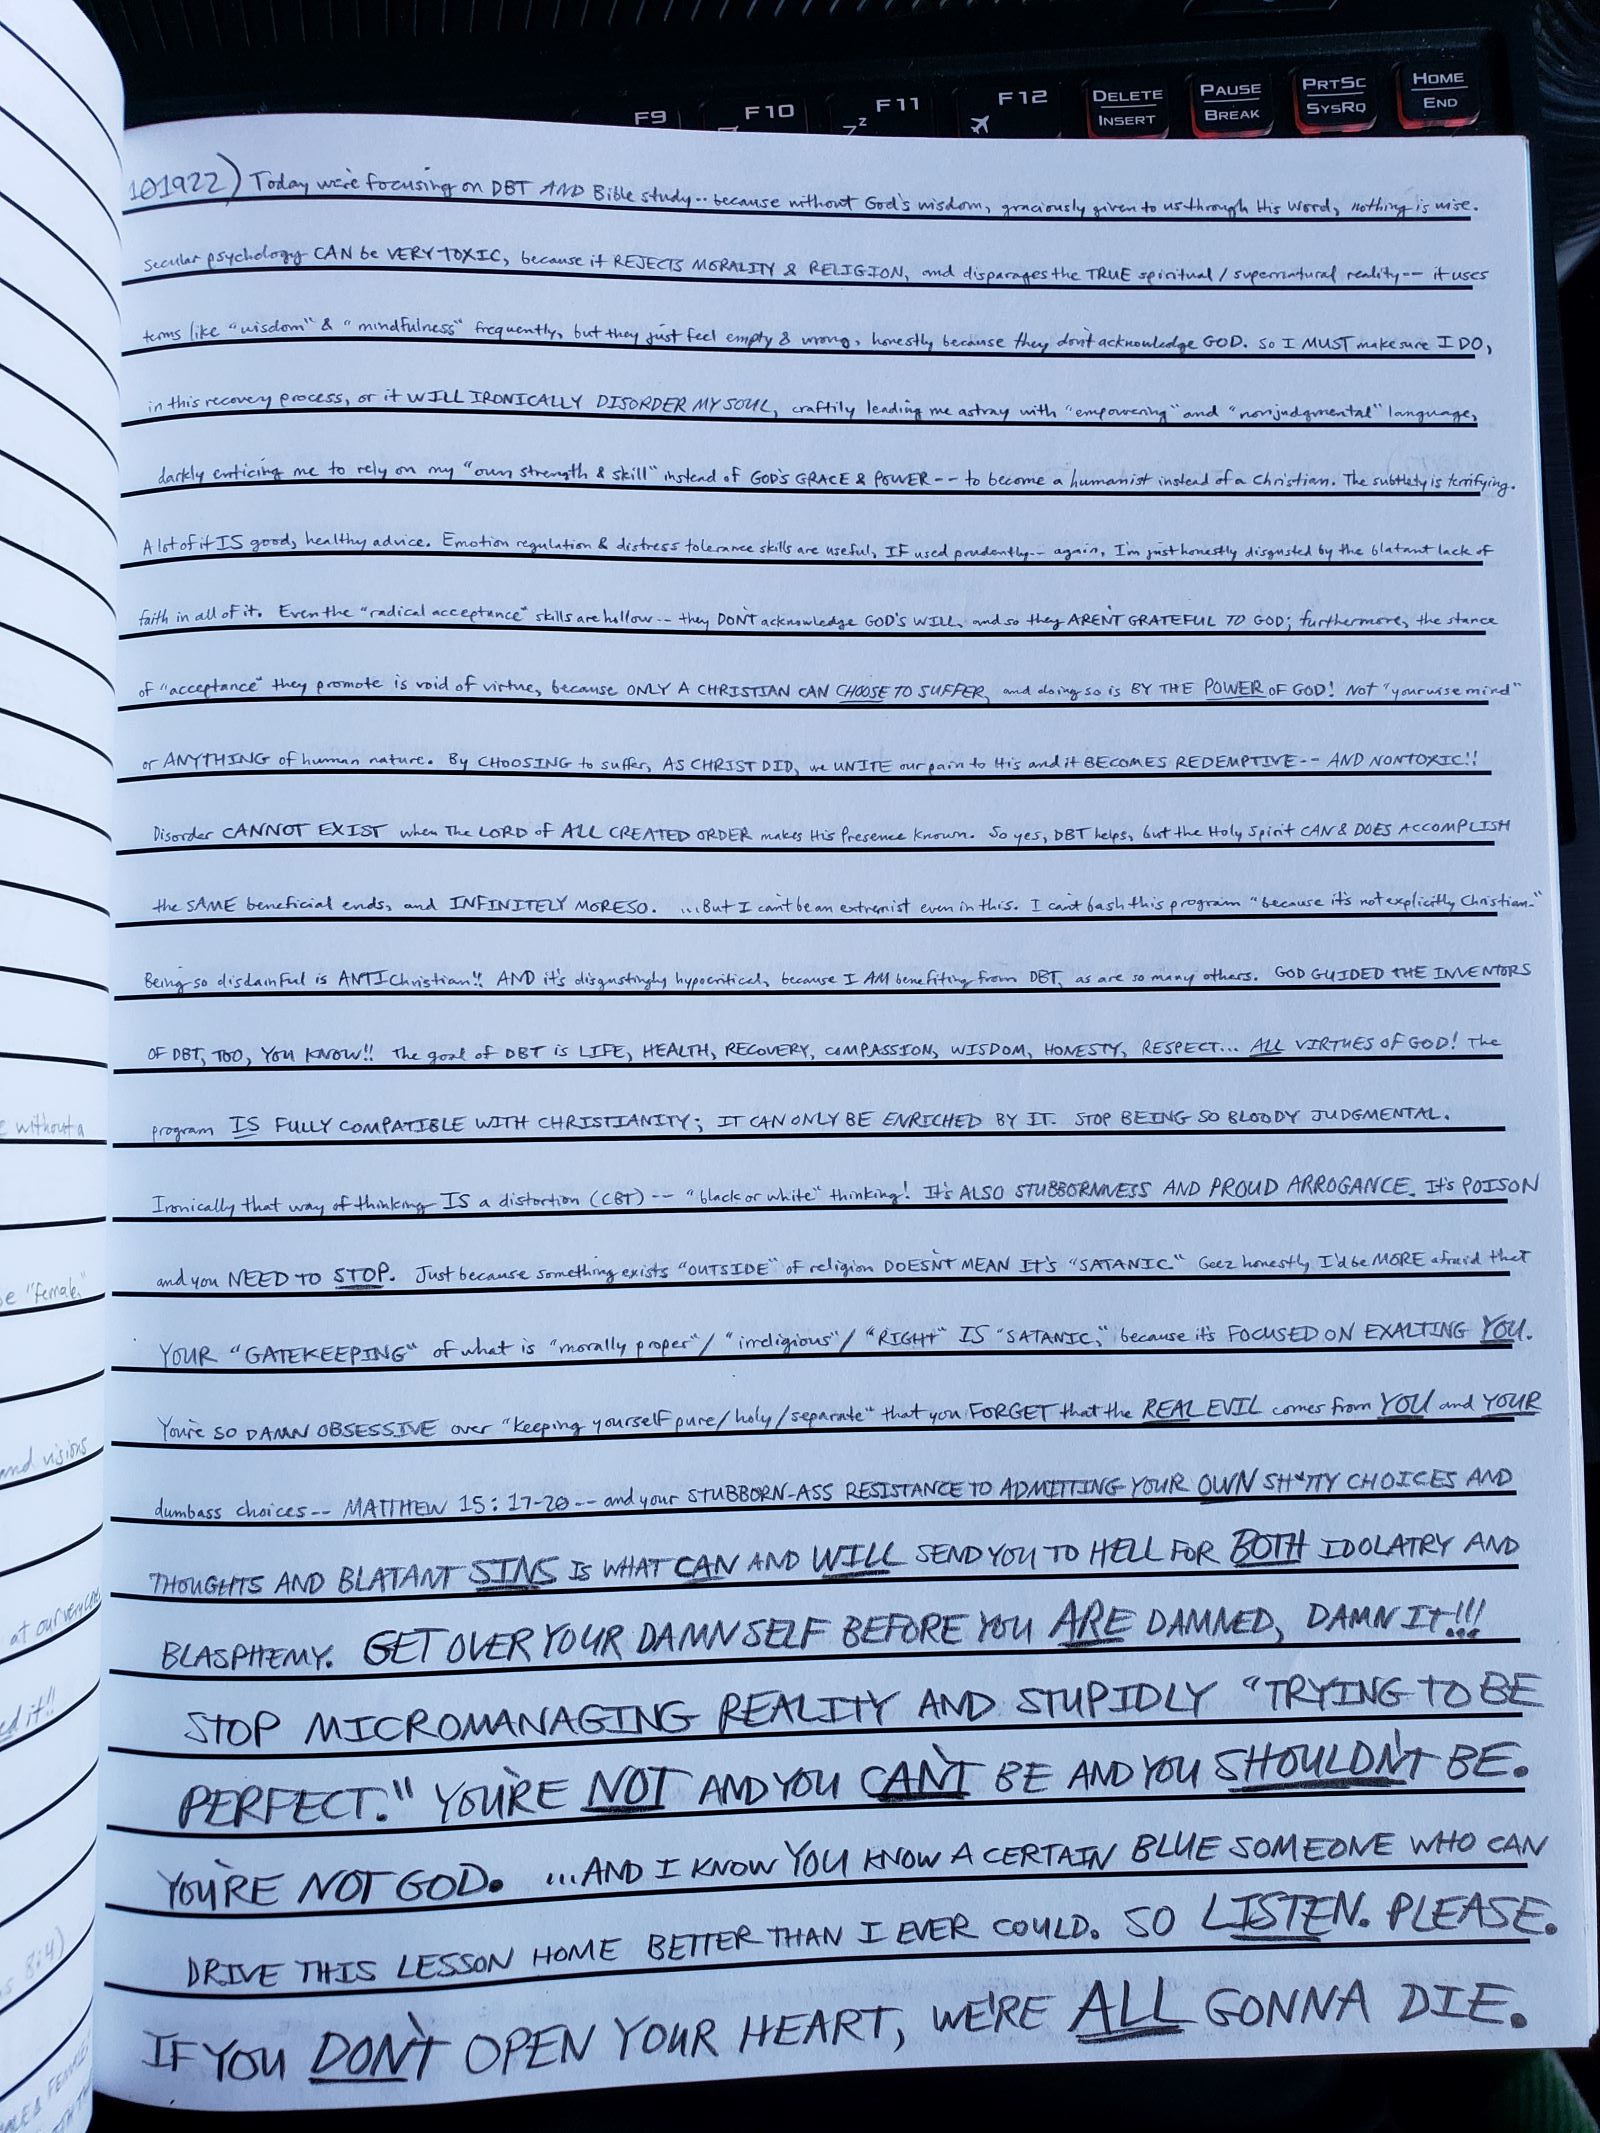 F9 F10 F11 F12 DELETE INSERT PAUSE BREAK PRTSC SYSRQ HOME END
101922) Today we're focusing on DBT AND Bible study-- because without God's wisdom, graciously given to us through His Word, nothing is wise.
Secular psychology CAN be VERY TOXIC, because it REJECTS MORALITY & RELIGION, and disparages the TRUE spiritual/supernatural reality-- it uses
terms like "wisdom" & "mindfulness" frequently, but they just feel empty & wrong, honestly because they don't acknowledge GOD. So I MUST make sure I DO,
in this recovery process, or it WILL IRONICALLY DISORDER MY SOUL, craftily leading me astray with "empowering" and "nonjudgmental" language,
darkly enticing me to rely on my "own strength & skill" instead of GOD'S GRACE & POWER-- to become a humanist instead of a Christian. The subtlety is terrifying.
A lot of it IS good, healthy advice. Emotion regulation & distress tolerance skills are useful, IF used prudently-- again, I'm just honestly disgusted by the blatant lack of
faith in all of it. Even the "radical acceptance" skills are hollow-- they DON'T acknowledge GOD'S WILL, and so they AREN'T GRATEFUL TO GOD; furthermore, the stance
of "acceptance" they promote is void of virtue, because ONLY A CHRISTIAN CAN CHOOSE TO SUFFER, and doing so is BY THE POWER OF GOD! Not "your wise mind"
or ANYTHING of human nature. By CHOOSING to suffer, AS CHRIST DID, we UNITE our pain to His and it BECOMES REDEMPTIVE-- AND NONTOXIC!!
Disorder CANNOT EXIST when The LORD of ALL CREATED ORDER makes His Presence known. So yes, DBT helps, but the Holy Spirit CAN & DOES ACCOMPLISH
the SAME beneficial ends, and INFINITELY MORESO. ...But I can't be an extremist even in this. I can't bash this program "because it's not explicitly Christian."
Being so disdainful is ANTIChristian!! AND it's disgustingly hypocritical, because I AM benefiting from DBT, as are so many others. GOD GUIDED THE INVENTORS
OF DBT, TOO, YOU KNOW!! The goal of DBT is LIFE, HEALTH, RECOVERY, COMPASSION, WISDOM, HONESTY, RESPECT... ALL VIRTUES OF GOD! The
program IS FULLY COMPATIBLE WITH CHRISTIANITY; IT CAN ONLY BE ENRICHED BY IT. STOP BEING SO BLOODY JUDGMENTAL.
Ironically that way of thinking IS a distortion (CBT)-- "black or white" thinking! It's ALSO STUBBORNNESS AND PROUD ARROGANCE. It's POISON
and you NEED TO STOP. Just because something exists "OUTSIDE" of religion DOESN'T MEAN IT'S "SATANIC." Geez honestly I'd be MORE afraid that
YOUR "GATEKEEPING" of what is "morally proper"/ "irreligious"/ "RIGHT" IS "SATANIC," because it's FOCUSED ON EXALTING YOU.
You're SO DAMN OBSESSIVE over "keeping yourself pure/holy/separate" that you FORGET that the REAL EVIL comes from YOU and YOUR
dumbass choices-- MATTHEW 15:17-20-- and your STUBBORN-ASS RESISTANCE TO ADMITTING YOUR OWN SH*TTY CHOICES AND
THOUGHTS AND BLATANT SINS IS WHAT CAN AND WILL SEND YOU TO HELL FOR BOTH IDOLATRY AND
BLASPHEMY. GET OVER YOUR DAMN SELF BEFORE YOU ARE DAMNED, DAMN IT!!!
STOP MICROMANAGING REALITY AND STUPIDLY "TRYING TO BE
PERFECT." YOU'RE NOT AND YOU CAN'T BE AND YOU SHOULDN'T BE.
YOU'RE NOT GOD. ...AND I KNOW YOU KNOW A CERTAIN BLUE SOMEONE WHO CAN
DRIVE THIS LESSON HOME BETTER THAN I EVER COULD. SO LISTEN. PLEASE.
IF YOU DON'T OPEN YOUR HEART, WE'RE ALL GONNA DIE.
without a
"female,"
and visions
at our very
it!!
8:4)